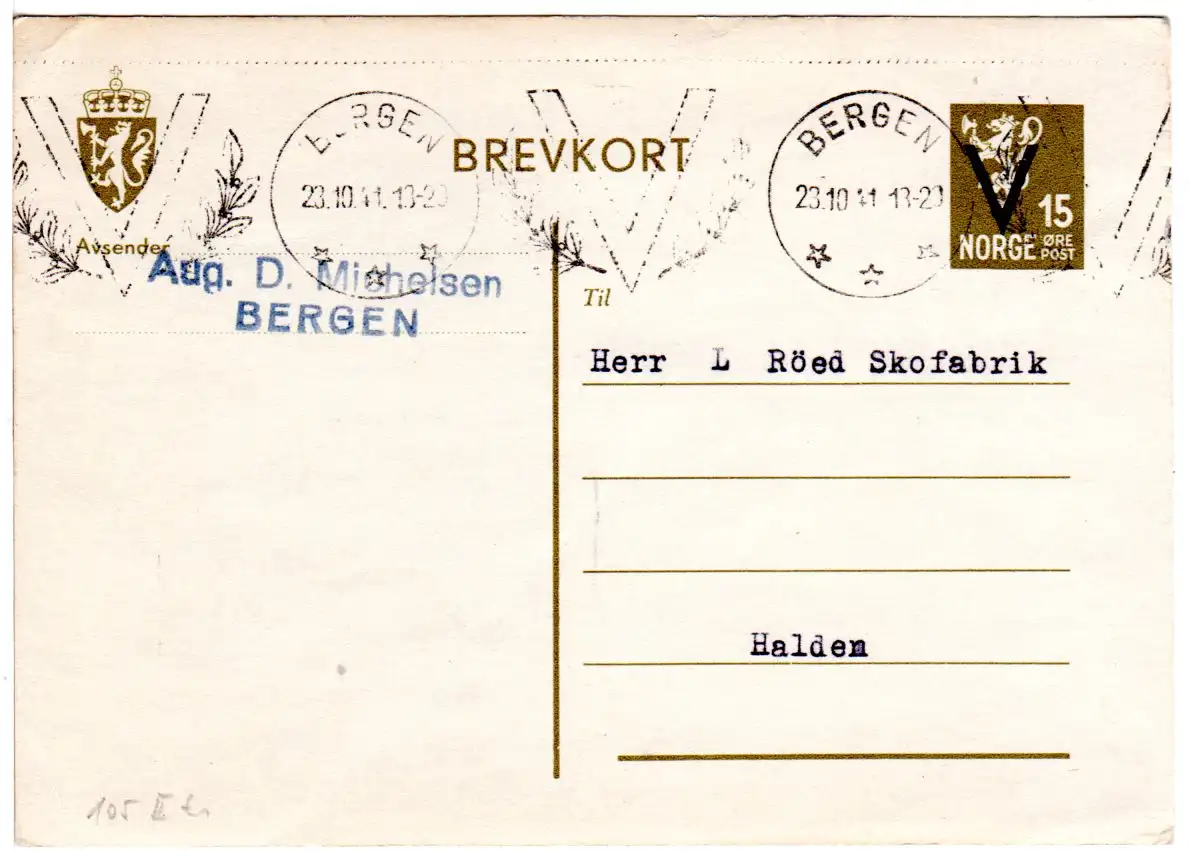 BERGEN
23.10.41.13-20
BREVKORT
BERGEN
23.10 41 13-20
V
15
NORGE ØRE
POST
Avsender
Aug. D. Michelsen
BERGEN
Til
Herr L Röed Skofabrik
Halden
105 II